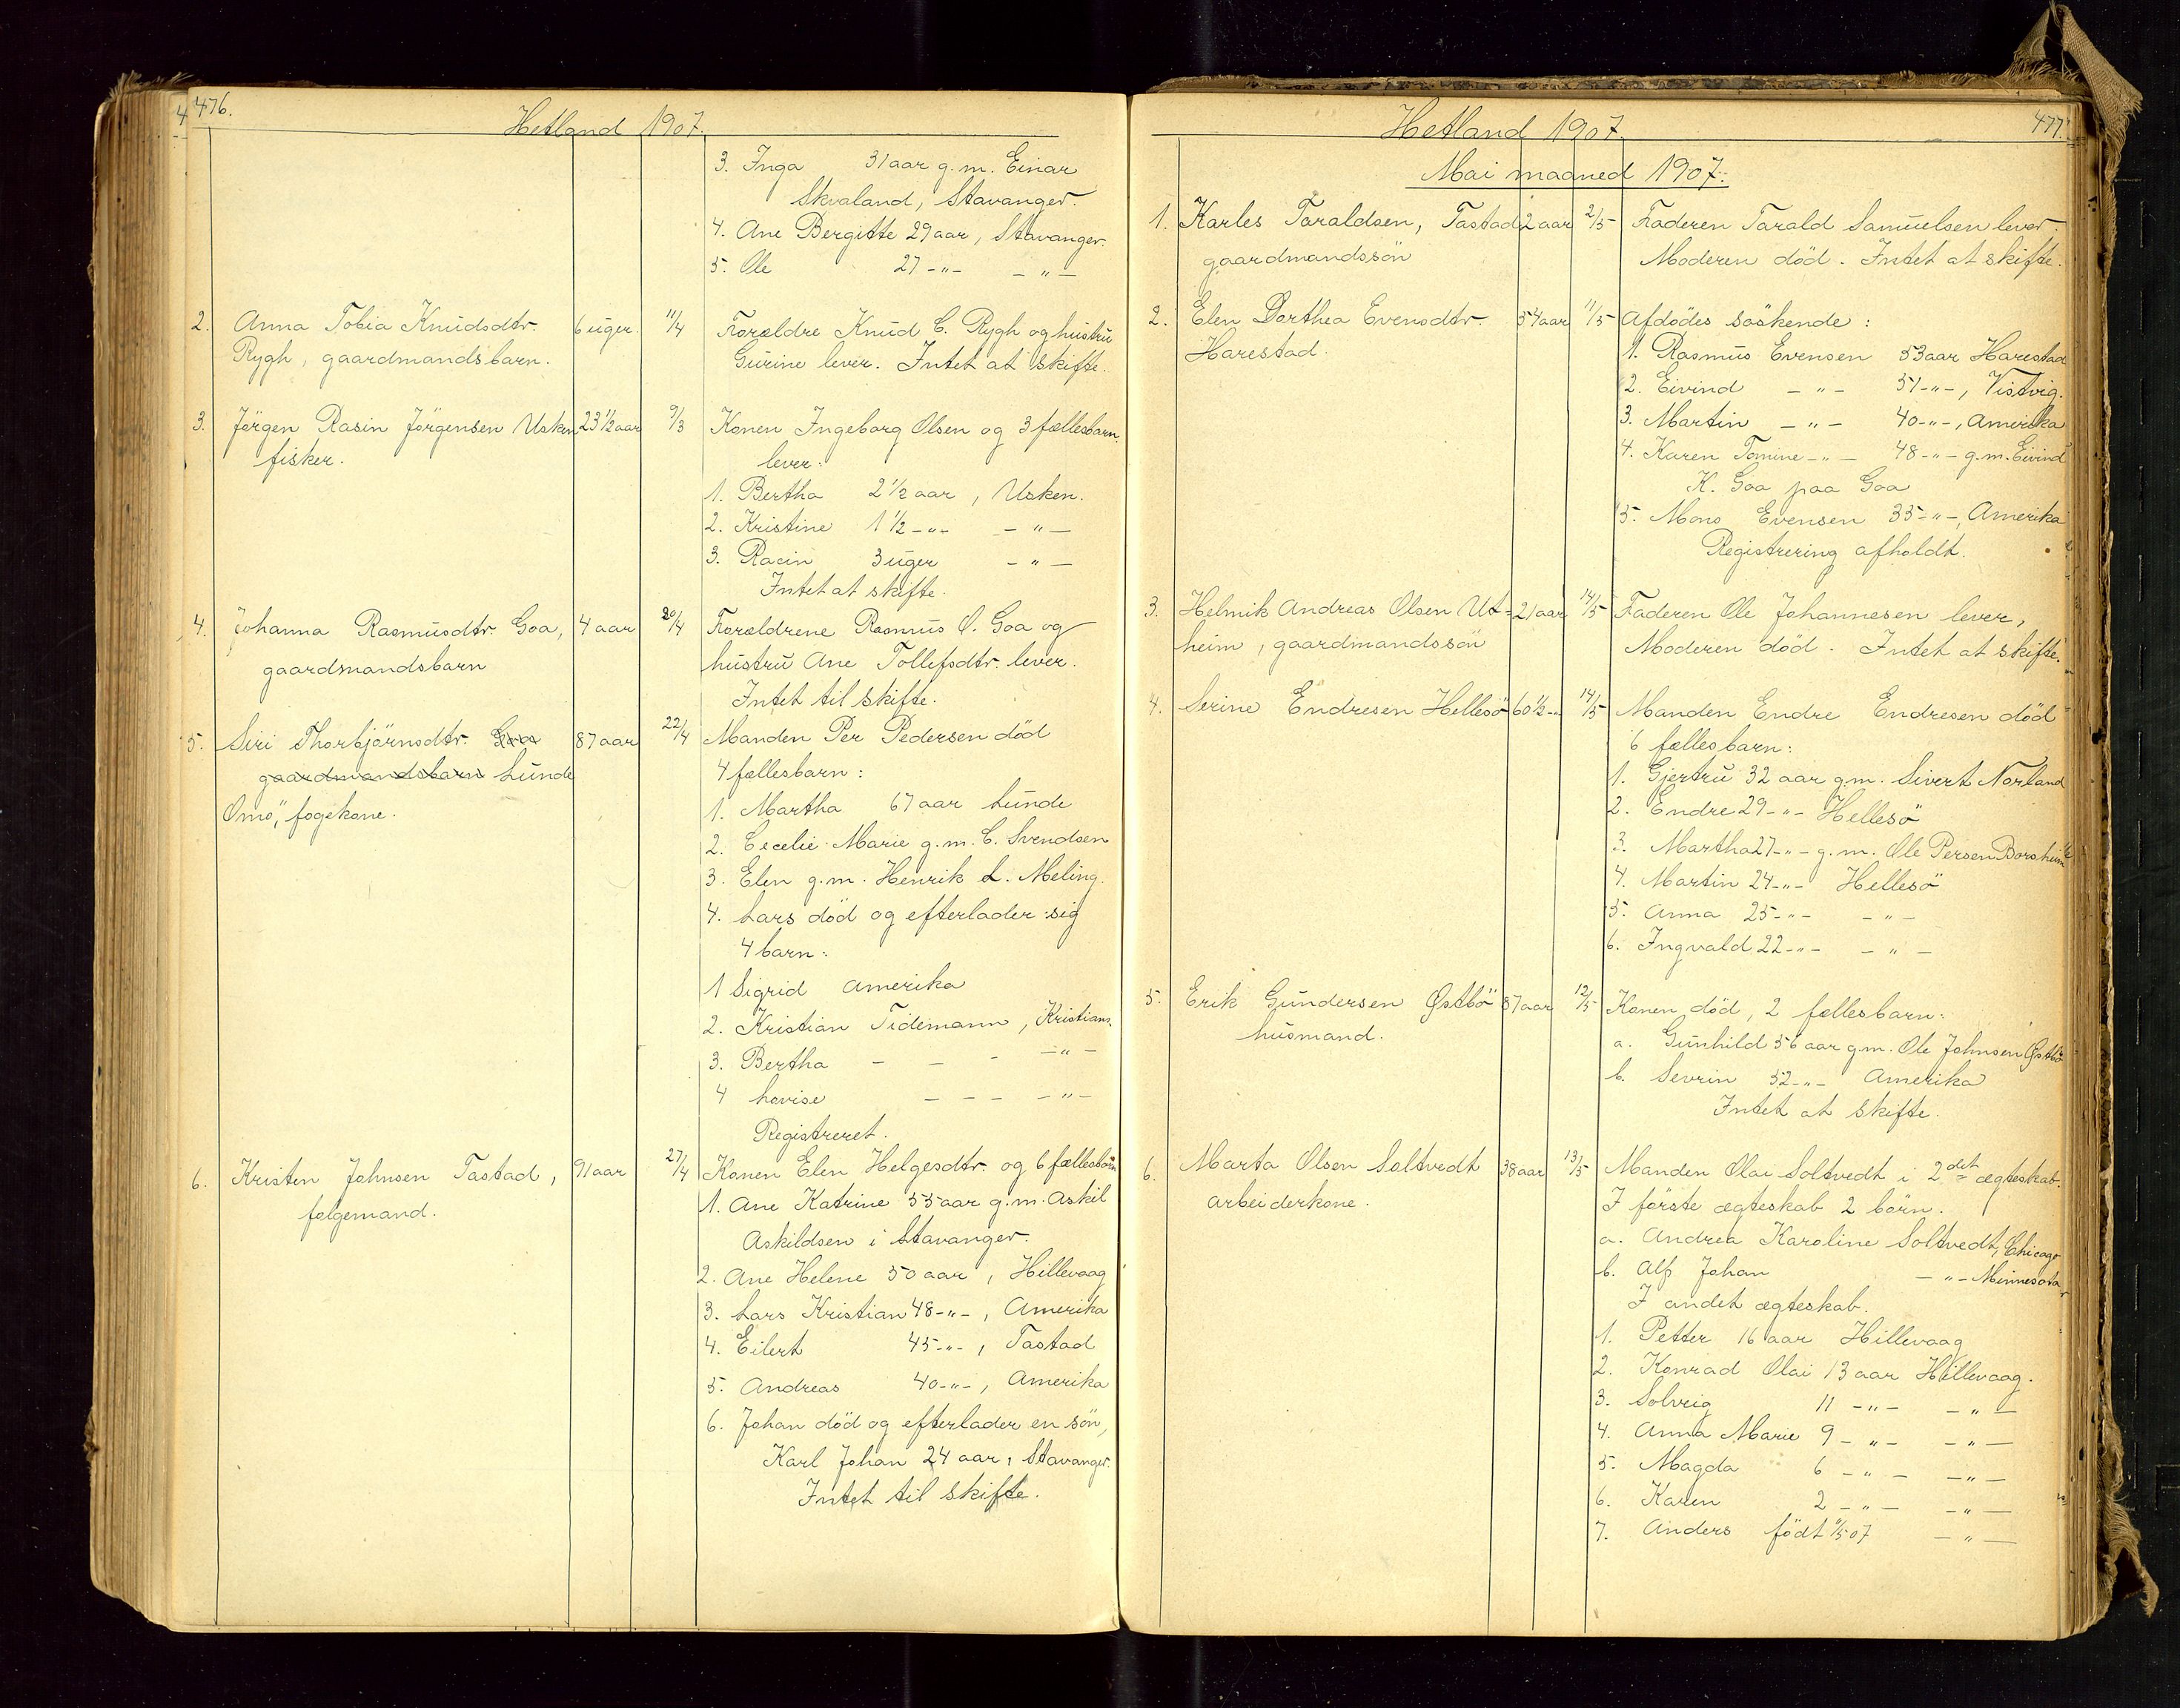 476.
Hetland 1907.
3. Inga 31 aar g.m. Einar
Skvaland, Stavanger.
4. Ane Bergitte 29 aar, Stavanger.
5. Ole 27 -"- -"-
2. Anna Tobia Knudsdtr. 6 uger. 11/4 Forældre Knud C. Rygh og hustru
Rygh, gaardmandsbarn. Gurine lever. Intet at skifte.
3. Jörgen Rasin Jörgensen Usken 23 1/2 aar 9/3 Konen Ingeborg Olsen og 3 fællesbarn
fisker. lever:
1. Bertha 2 1/2 aar, Usken.
2. Kristine 1 1/2 -"- -"-
3. Racin 3 uger -"-
Intet at skifte.
4. Johanna Rasmusdtr. Goa, 4 aar 20/4 Forældrene Rasmus O. Goa og
gaardmandsbarn hustru Ane Tollefsdtr. lever.
Intet til skifte.
5. Siri Thorbjörnsdtr. Goa 87 aar 22/4 Manden Per Pedersen död
gaardmandsbarn Lunde 4 fællesbarn:
Omö, fogekone. 1. Martha 67 aar Lunde
2. Cecelie Marie g.m. C. Svendsen
3. Elen g.m. Henrik L. Meling.
4. Lars död og efterlader sig
4 barn:
1 Sigrid Amerika
2. Kristian Tidemann, Kristians.
3. Bertha - - - -"-
4 Lovise - - - -"-
Registreret.
6. Kristen Johnsen Tastad, 91 aar 27/4 Konen Elen Helgesdtr. og 6 fællesbörn
følgemand. 1. Ane Katrine 55 aar g.m. Askil
Askildsen i Stavanger.
2. Ane Helene 50 aar, Hillevaag
3. Lars Kristian 48 -"-, Amerika
4. Eilert 45 -"-, Tastad
5. Andreas 40 -"-, Amerika
6. Johan död og efterlader en sön,
Karl Johan 24 aar, Stavanger.
Intet til skifte.
477.
Hetland 1907
Mai maaned 1907.
1. Karles Taraldsen, Tastad 2 aar 2/5 Faderen Tarald Samuelsen lever.
gaardmandssön Moderen död. Intet at skifte.
2. Elen Dorthea Evensdtr. 54 aar 11/5 Afdödes söskende:
Harestad. 1. Rasmus Evensen 53 aar Harestad
2. Eivind -"- 51 -"-, Vistvig.
3. Martin -"- 40 -"-, Amerika
4. Karen Tomine -"- 48 -"- g.m. Eivind
K. Goa paa Goa
5. Mons Evensen 35 -"-, Amerika
Registrering afholdt.
3. Helmik Andreas Olsen Ut= 21 aar 14/5 Faderen Ole Johannesen lever,
heim, gaardmandssön Moderen död. Intet at skifte.
4. Serine Endresen Hellesö 60 1/2 -"- 14/5 Manden Endre Endresen död
6 fællesbarn:
1. Gjertru 32 aar g.m. Sivert Norland
2. Endre 29 -"- Hellesö
3. Martha 27 -"- g.m. Ole Persen Borsheim
4. Martin 24 -"- Hellesö
5. Anna 25 -"- -"-
6. Ingvald 22 -"- -"-
5. Erik Gundersen Østbö 87 aar 12/5 Konen död, 2 fællesbarn:
husmand. a. Gunhild 56 aar g.m. Ole Johnsen Østbö
b. Sevrin 52 -"- Amerika
Intet at skifte.
6. Marta Olsen Soltvedt 38 aar 13/5 Manden Olai Soltvedt i 2det ægteskab.
arbeiderkone. I förste ægteskab 2 börn.
a. Andrea Karoline Soltvedt, Chicago
b. Alf Johan -"- Minnesota
I andet ægteskab.
1. Petter 16 aar Hillevaag
2. Konrad Olai 13 aar Hillevaag.
3. Solveig 11 -"- -"-
4. Anna Marie 9 -"- -"-
5. Magda 6 -"- -"-
6. Karen 2 -"- -"-
7. Anders födt 11/5 07 -"-